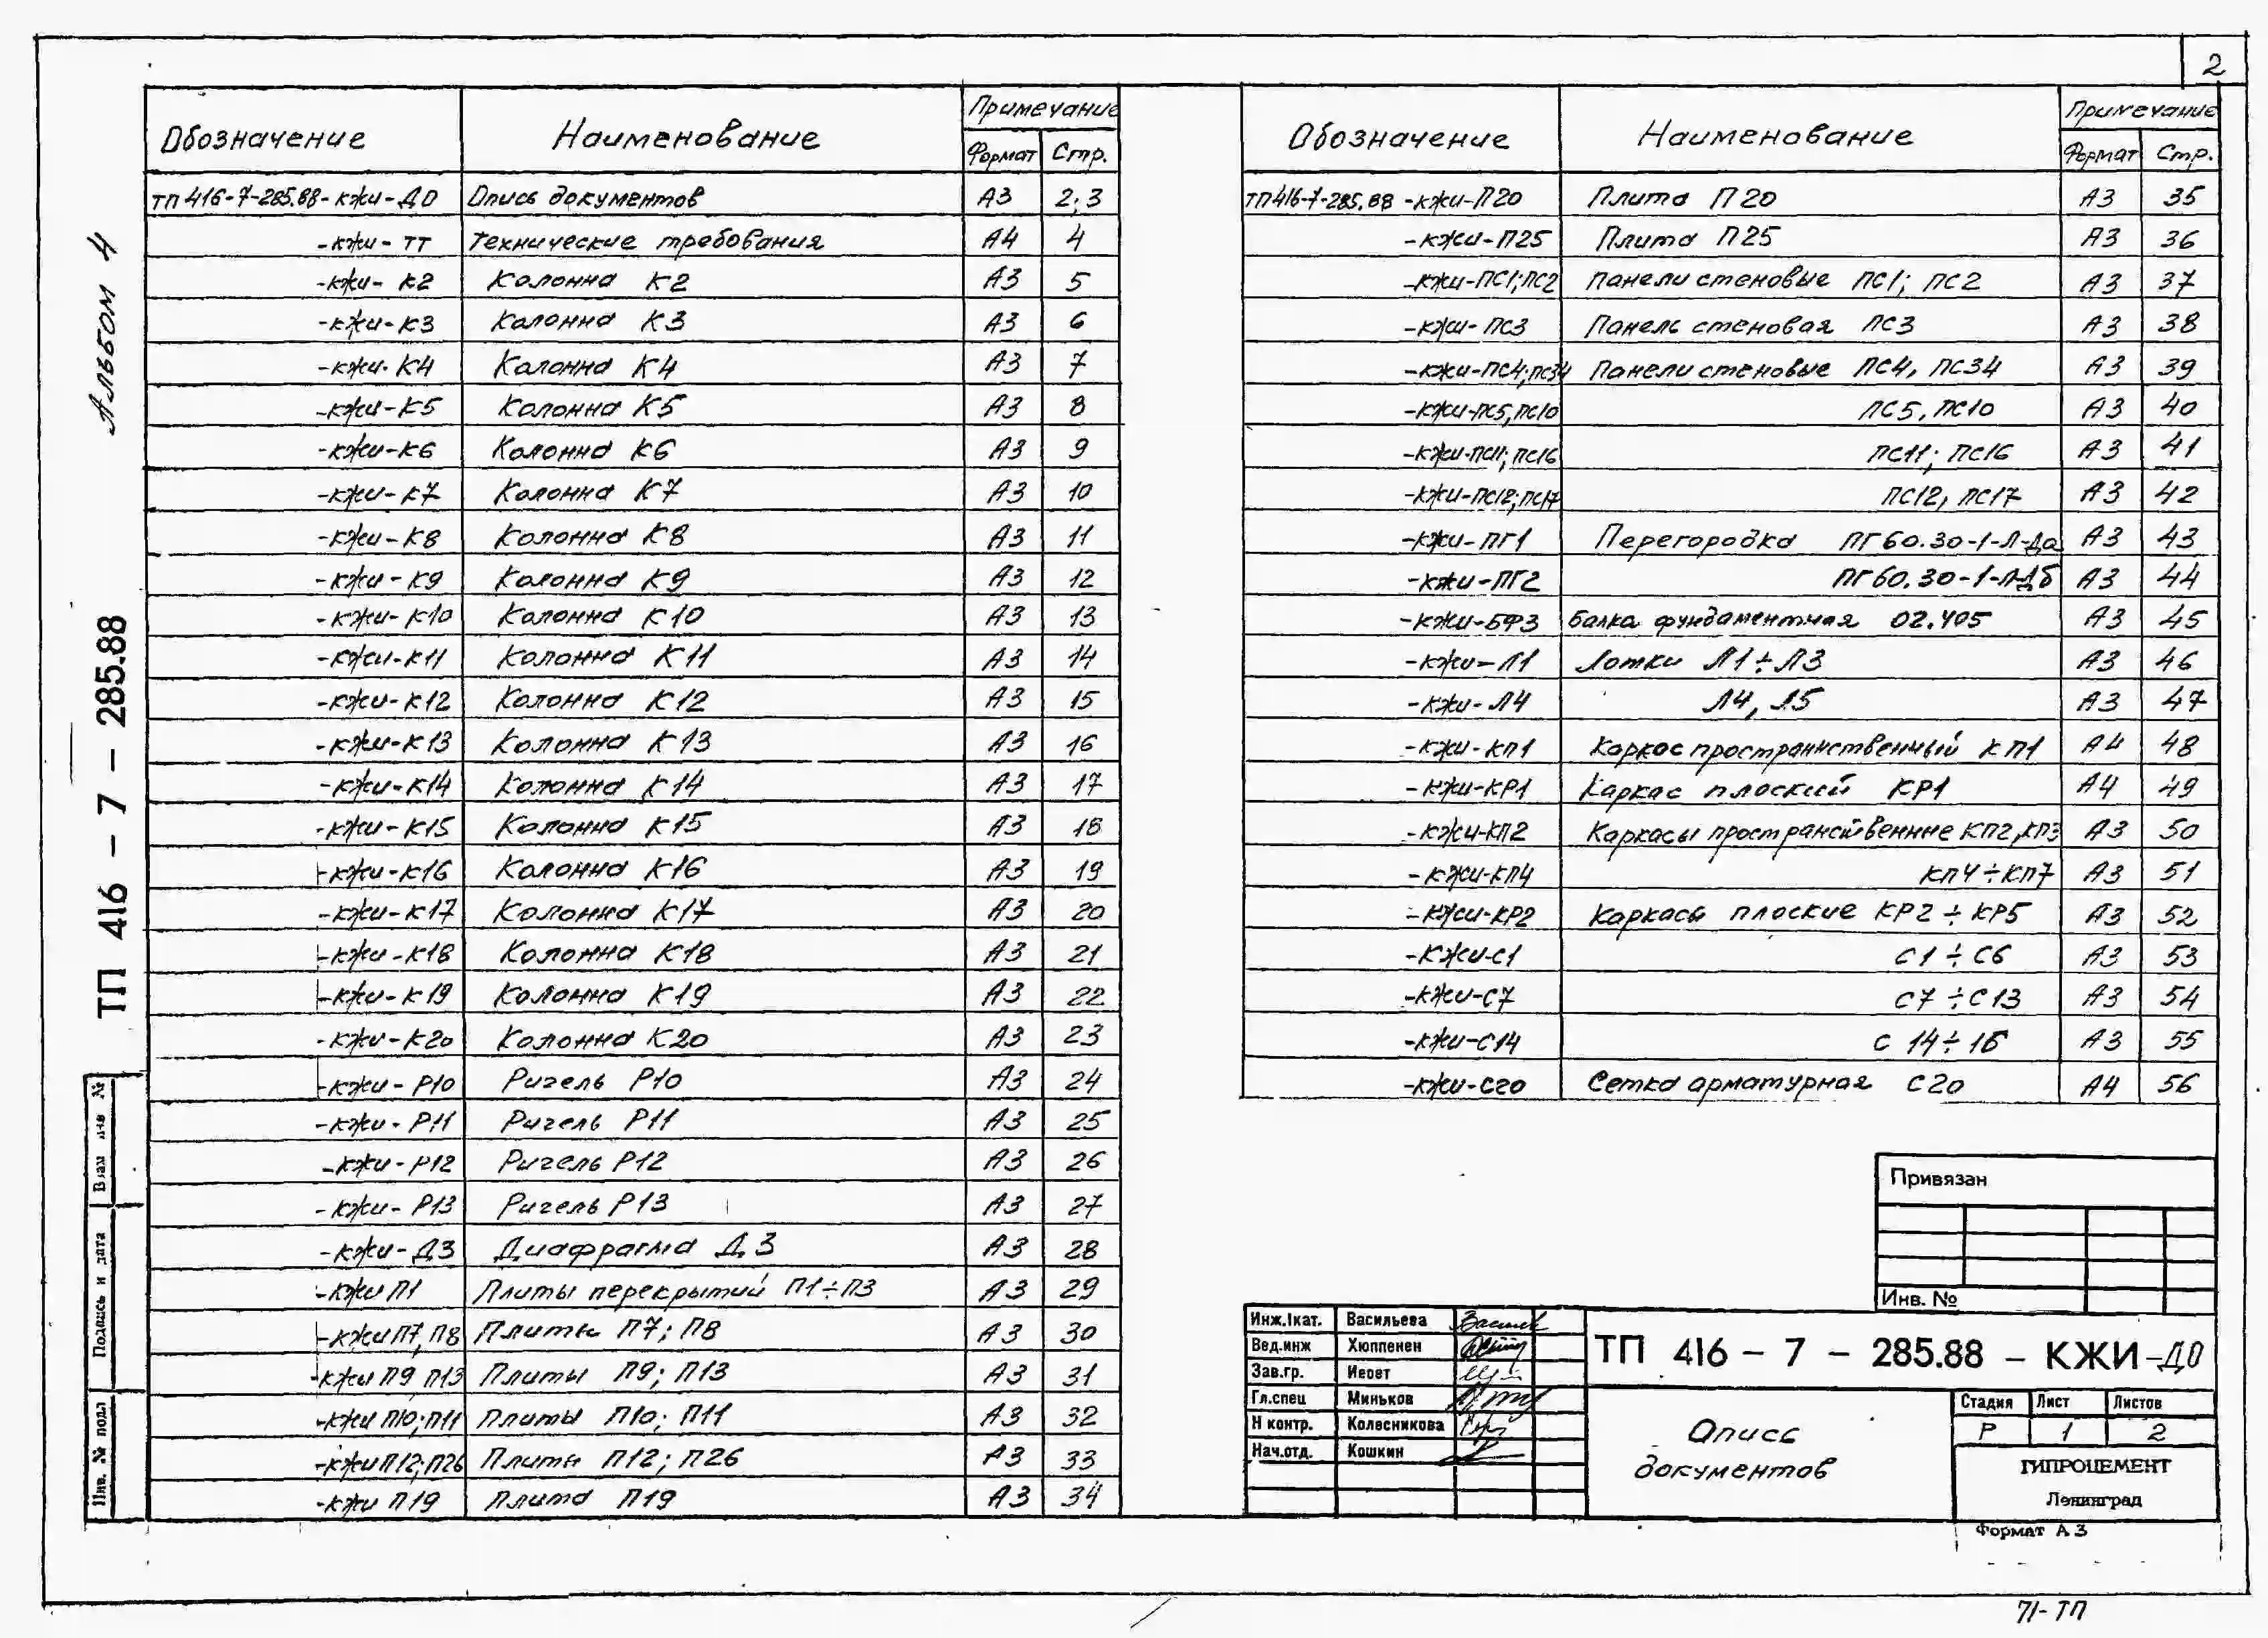 2
Альбом 4
ТП 416 - 7 - 285.88
Взам инв №
Подпись и дата
Инв. № подл
Обозначение Наименование Примечание
Формат Стр.
ТП 416-7-285.88-КЖИ-ДО Опись документов А3 2; 3
-КЖИ-ТТ Технические требования А4 4
-КЖИ-К2 Колонна К2 А3 5
-КЖИ-К3 Колонна К3 А3 6
-КЖИ-К4 Колонна К4 А3 7
-КЖИ-К5 Колонна К5 А3 8
-КЖИ-К6 Колонна К6 А3 9
-КЖИ-К7 Колонна К7 А3 10
-КЖИ-К8 Колонна К8 А3 11
-КЖИ-К9 Колонна К9 А3 12
-КЖИ-К10 Колонна К10 А3 13
-КЖИ-К11 Колонна К11 А3 14
-КЖИ-К12 Колонна К12 А3 15
-КЖИ-К13 Колонна К13 А3 16
-КЖИ-К14 Колонна К14 А3 17
-КЖИ-К15 Колонна К15 А3 18
-КЖИ-К16 Колонна К16 А3 19
-КЖИ-К17 Колонна К17 А3 20
-КЖИ-К18 Колонна К18 А3 21
-КЖИ-К19 Колонна К19 А3 22
-КЖИ-К20 Колонна К20 А3 23
-КЖИ-Р10 Ригель Р10 А3 24
-КЖИ-Р11 Ригель Р11 А3 25
-КЖИ-Р12 Ригель Р12 А3 26
-КЖИ-Р13 Ригель Р13 А3 27
-КЖИ-Д3 Диафрагма Д3 А3 28
-КЖИ П1 Плиты перекрытий П1÷П3 А3 29
-КЖИ П7, П8 Плиты П7; П8 А3 30
-КЖИ П9 П13 Плиты П9; П13 А3 31
-КЖИ П10; П11 Плиты П10; П11 А3 32
-КЖИ П12; П26 Плиты П12; П26 А3 33
-КЖИ П19 Плита П19 А3 34
Обозначение Наименование Примечание
Формат Стр.
ТП 416-7-285.88 -КЖИ-П20 Плита П20 А3 35
-КЖИ-П25 Плита П25 А3 36
-КЖИ-ПС1; ПС2 Панели стеновые ПС1; ПС2 А3 37
-КЖИ-ПС3 Панель стеновая ПС3 А3 38
-КЖИ-ПС4; ПС34 Панели стеновые ПС4, ПС34 А3 39
-КЖИ-ПС5, ПС10 ПС5, ПС10 А3 40
-КЖИ-ПС11; ПС16 ПС11; ПС16 А3 41
-КЖИ-ПС12; ПС17 ПС12, ПС17 А3 42
-КЖИ-ПГ1 Перегородка ПГ60.30-1-Л-Да А3 43
-КЖИ-ПГ2 ПГ60.30-1-Л-Дб А3 44
-КЖИ-БФ3 Балка фундаментная 02.405 А3 45
-КЖИ-Л1 Лотки Л1÷Л3 А3 46
-КЖИ-Л4 Л4, Л5 А3 47
-КЖИ-КП1 Каркас пространственный КП1 А4 48
-КЖИ-КР1 Каркас плоский КР1 А4 49
-КЖИ-КП2 Каркасы пространственные КП2, КП3 А3 50
-КЖИ-КП4 КП4÷КП7 А3 51
-КЖИ-КР2 Каркасы плоские КР2÷КР5 А3 52
-КЖИ-С1 С1÷С6 А3 53
-КЖИ-С7 С7÷С13 А3 54
-КЖИ-С14 С 14÷16 А3 55
-КЖИ-С20 Сетка арматурная С20 А4 56
Привязан
Инв. №
Инж.Iкат. Васильева
Вед.инж Хюппенен
Зав.гр. Иеоет
Гл.спец Миньков
Н контр. Колесникова
Нач.отд. Кошкин
ТП 416 - 7 - 285.88 - КЖИ-ДО
Опись
документов
Стадия Лист Листов
Р 1 2
ГИПРОЦЕМЕНТ
Ленинград
Формат А3
71-ТП